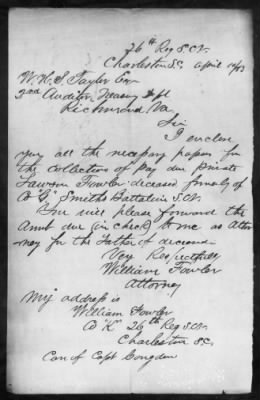 26th Reg S.C.V.
Charleston S.C. April 14/63
W. H. S. Taylor Esr
2nd Auditor Treasury Dept
Richmond Va.
Sir
I enclose
you all the necessary papers for
the collection of Pay due Private
Fowler deceased formerly of
Co "G" Smiths Battalion S.C.V.
You will please forward the
Amt due (in check) to me as Attor
ney for the Father of deceased
Very Respectfully
William Fowler
Attorney
My address is
William Fowler
Co "K" 26th Reg S.C.V.
Charleston S.C.
Care of Capt Congdon